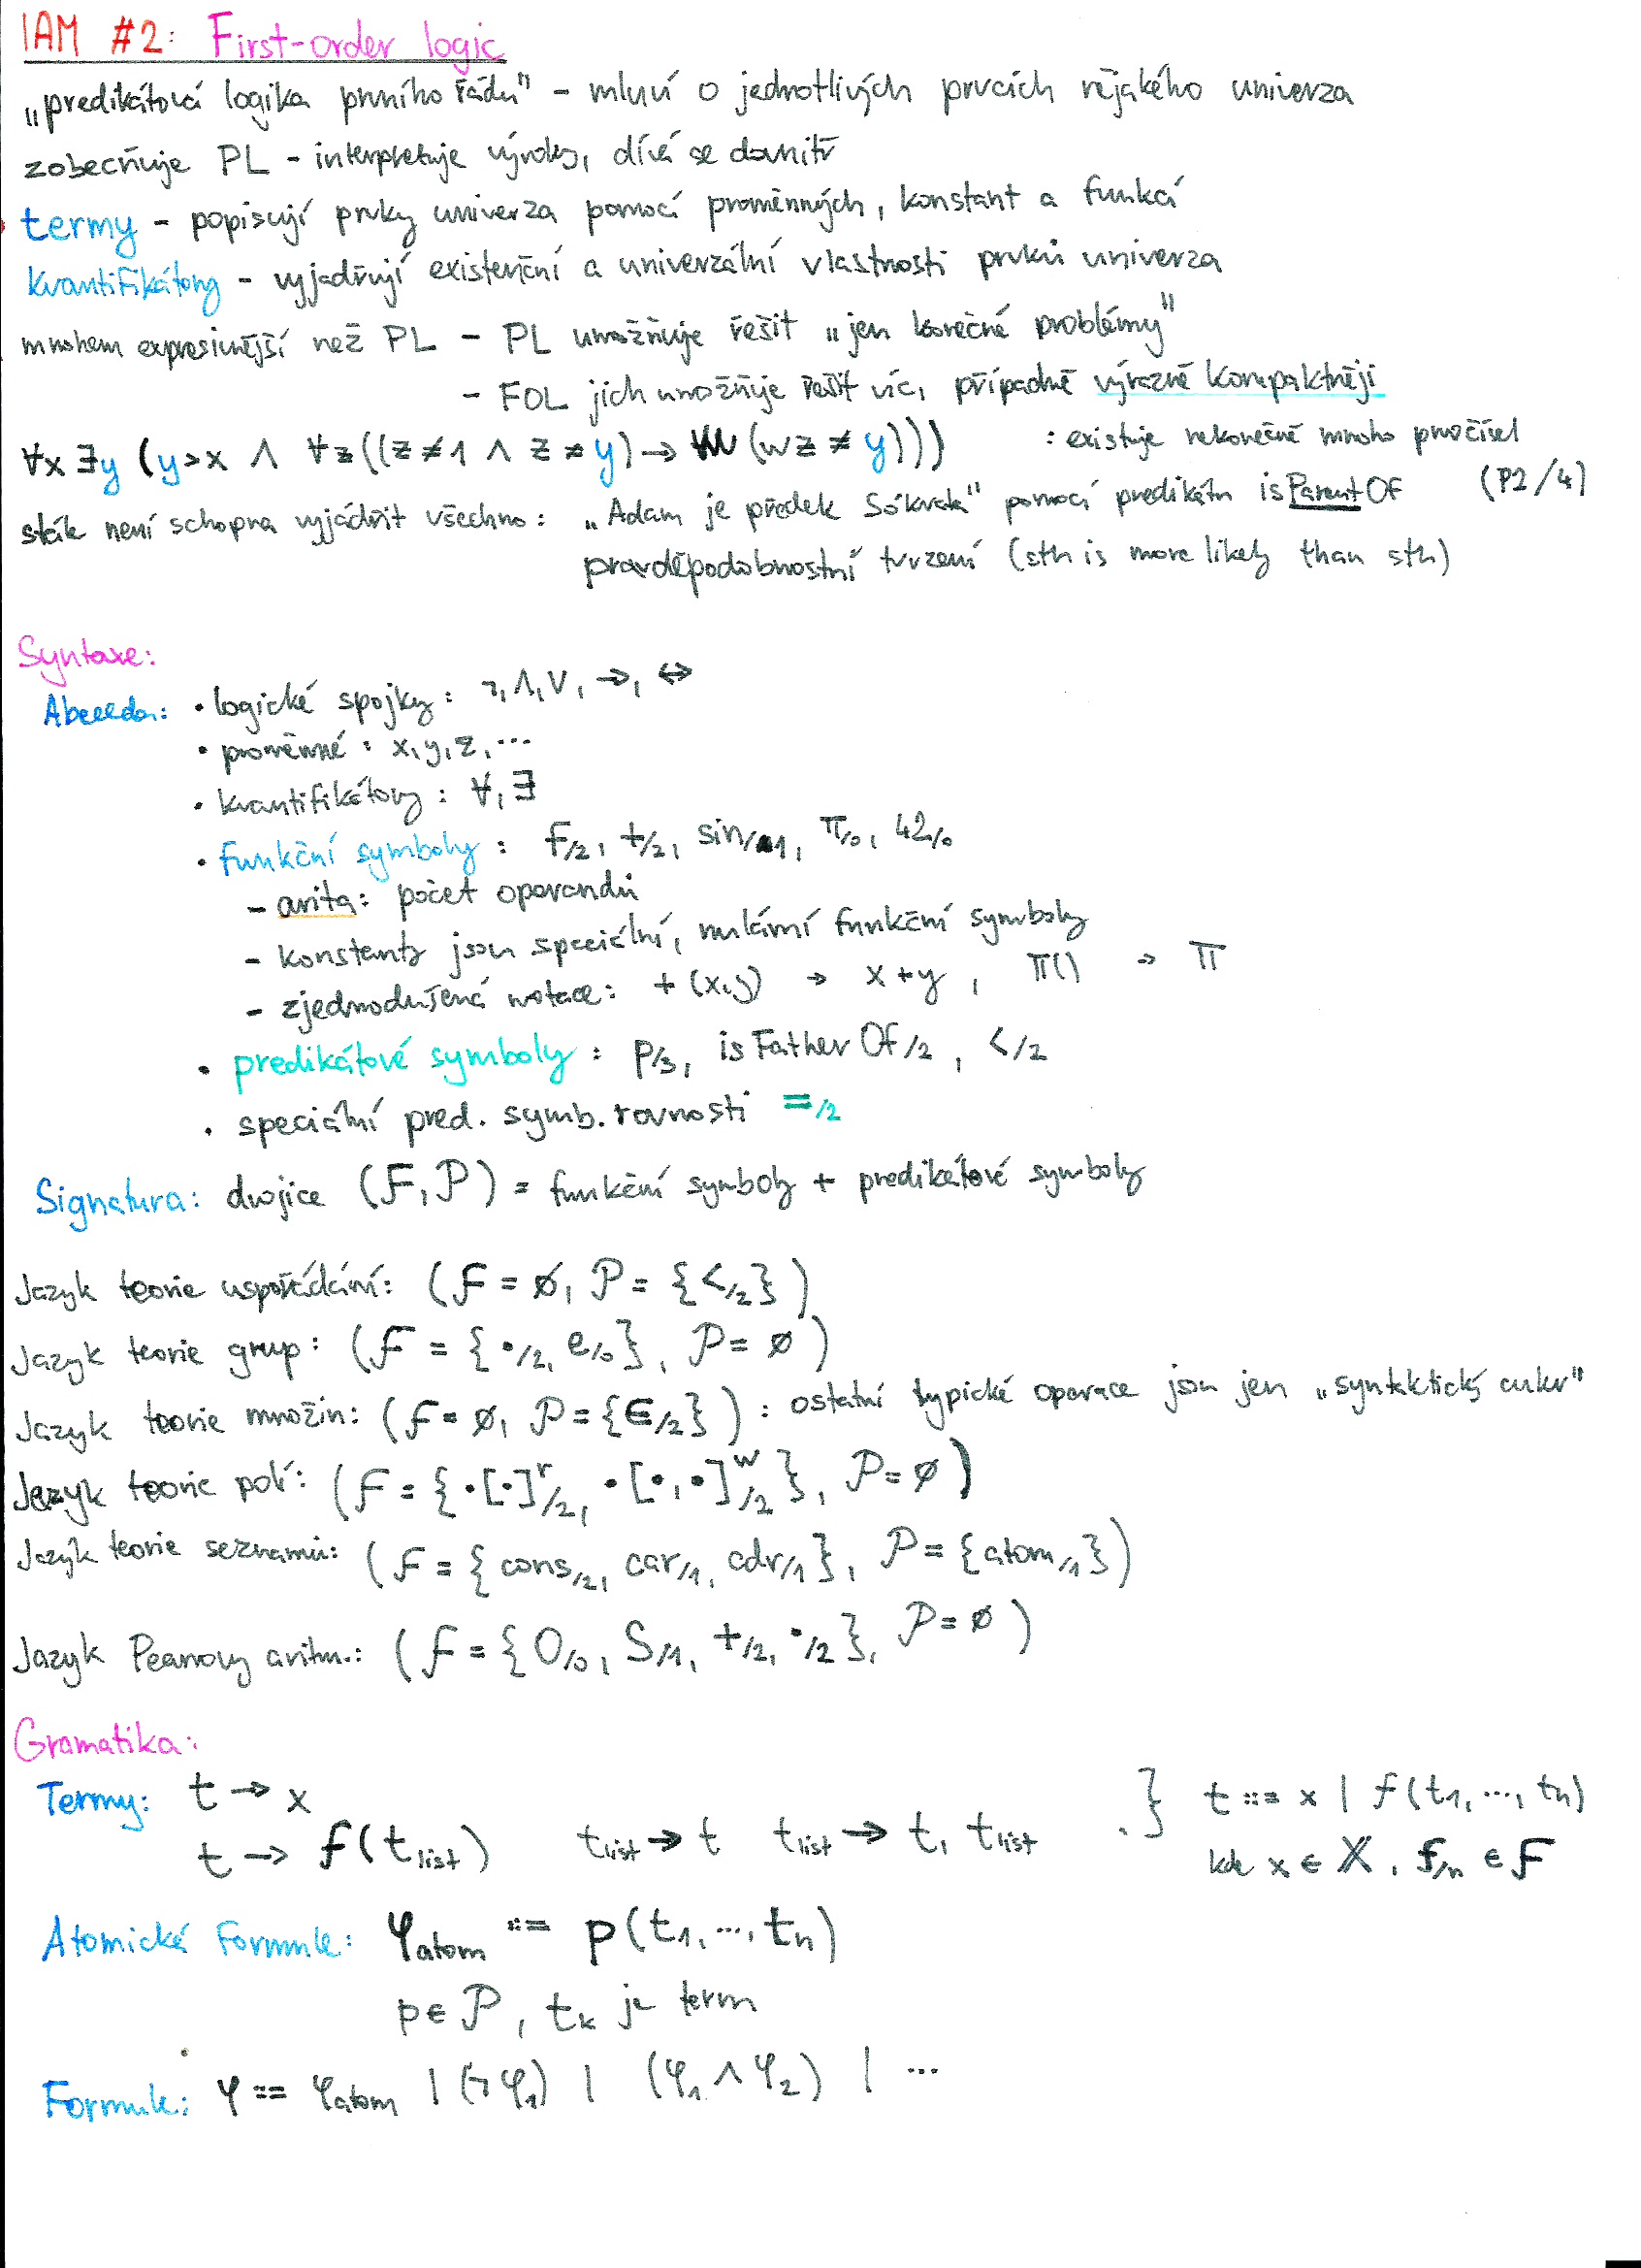 IAM #2: First-order logic
„predikátová logika prvního řádu" - mluví o jednotlivých prvcích nějakého univerza
zobecňuje PL - interpretuje výroky, dívá se dovnitř
termy - popisují prvky univerza pomocí proměnných, konstant a funkcí
kvantifikátory - vyjadřují existenční a univerzální vlastnosti prvků univerza
mnohem expresivnější než PL - PL umožňuje řešit „jen konečné problémy"
- FOL jich umožňuje řešit víc, případně výrazně kompaktněji
∀x ∃y (y>x ∧ ∀z((z≠1 ∧ z≠y) → ∀w (wz ≠ y))) : existuje nekonečně mnoho prvočísel
stále není schopna vyjádřit všechno: „Adam je předek Sókrata" pomocí predikátu isParentOf (P2/4)
pravděpodobnostní tvrzení (sth is more likely than sth)
Syntaxe:
Abeceda: • logické spojky: ¬, ∧, ∨, →, ↔
• proměnné: x, y, z, ...
• kvantifikátory: ∀, ∃
• funkční symboly: f/2, +/2, sin/1, π/0, 42/0
- arita: počet operandů
- konstanty jsou speciální, nulární funkční symboly
- zjednodušená notace: +(x,y) → x+y, π() → π
• predikátové symboly: p/3, isFatherOf/2, </2
• speciální pred. symb. rovnosti =/2
Signatura: dvojice (F, P) = funkční symboly + predikátové symboly
Jazyk teorie uspořádání: (F = ∅, P = {</2})
Jazyk teorie grup: (F = {•/2, e/0}, P = ∅)
Jazyk teorie množin: (F = ∅, P = {∈/2}) : ostatní typické operace jsou jen „syntaktický cukr"
Jazyk teorie polí: (F = {•[•]ʳ/2, •[•,•]ʷ/2}, P = ∅)
Jazyk teorie seznamů: (F = {cons/2, car/1, cdr/1}, P = {atom/1})
Jazyk Peanovy aritm.: (F = {0/0, S/1, +/2, •/2}, P = ∅)
Gramatika:
Termy: t → x } t ::= x | f(t₁, ..., tₙ)
t → f(t_list) t_list → t t_list → t, t_list kde x ∈ 𝕏, f/n ∈ F
Atomické formule: φ_atom ::= p(t₁, ..., tₙ)
p ∈ P, tₖ je term
Formule: φ ::= φ_atom | (¬φ₁) | (φ₁ ∧ φ₂) | ...